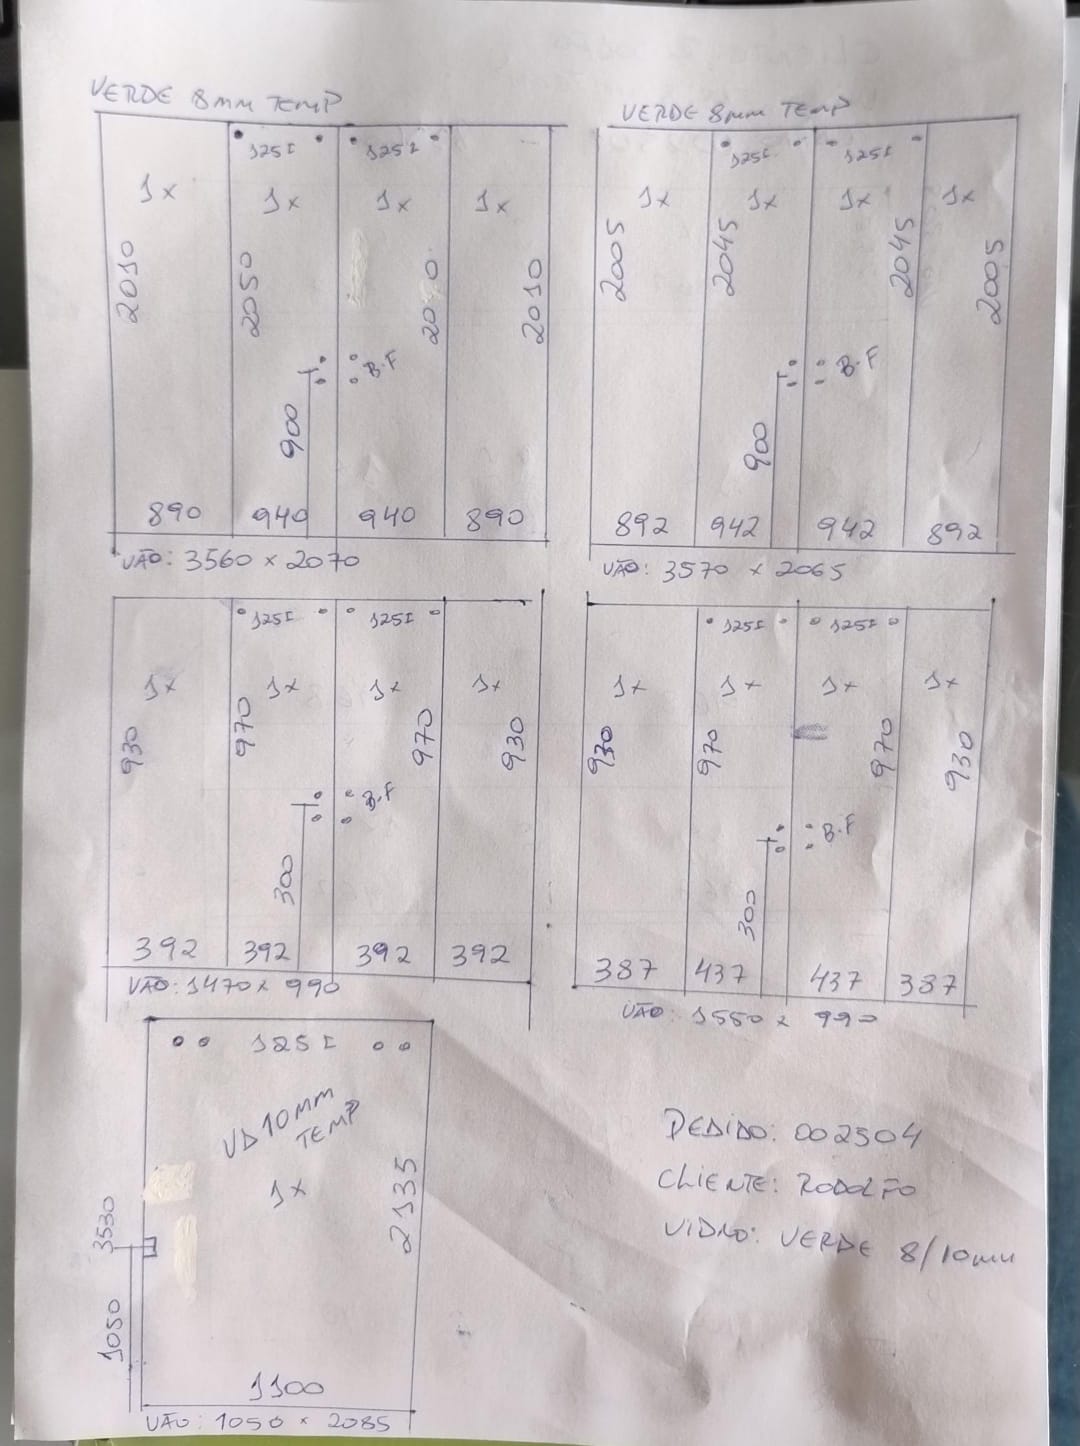 VERDE 8MM TEMP
125I 125I
1x 1x 1x 1x
2010 2050 2010
B.F
900
890 940 940 890
VÃO: 3560 x 2070
VERDE 8MM TEMP
125I 125I
1x 1x 1x 1x
2005 2045 2045 2005
B.F
900
892 942 942 892
VÃO: 3570 x 2065
125I 125I
1x 1x 1x 1x
930 970 970 930
B.F
300
392 392 392 392
VÃO: 1470 x 990
125I 125I
1x 1x 1x 1x
930 970 970 930
B.F
300
387 437 437 387
VÃO: 1550 x 990
125I
VD 10MM
TEMP
1x
2135
3530
1050
1100
VÃO: 1050 x 2085
PEDIDO: 002504
CLIENTE: RODOLFO
VIDRO: VERDE 8/10mm